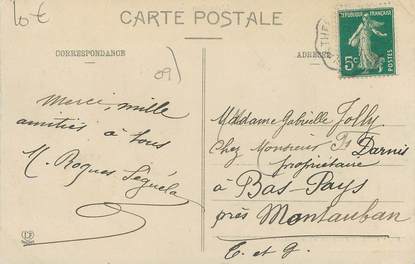 10€
CARTE POSTALE
CORRESPONDANCE
ADRESSE
REPUBLIQUE FRANÇAISE
5c
POSTES
09)
Merci, mille
amitiés à tous
M. Roques Séguela
Madame Gabrielle Jolly
Chez Monsieur Darnis
propriétaire
à Bas-Pays
près Montauban
T. et G.